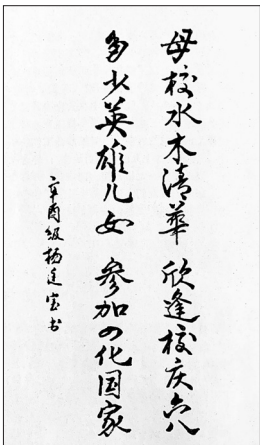 母校水木清華 欣逢校庆六八
多少英雄儿女 参加四化国家
辛酉级杨廷宝书